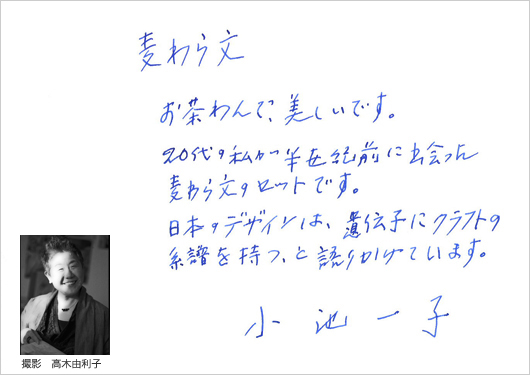 麦わら文
お茶わんで、美しいです。
20代の私が半世紀前に出会った
麦わら文のロットです。
日本のデザインは、遺伝子にクラフトの
系譜を持つ、と語りかけています。
小池一子
撮影　高木由利子